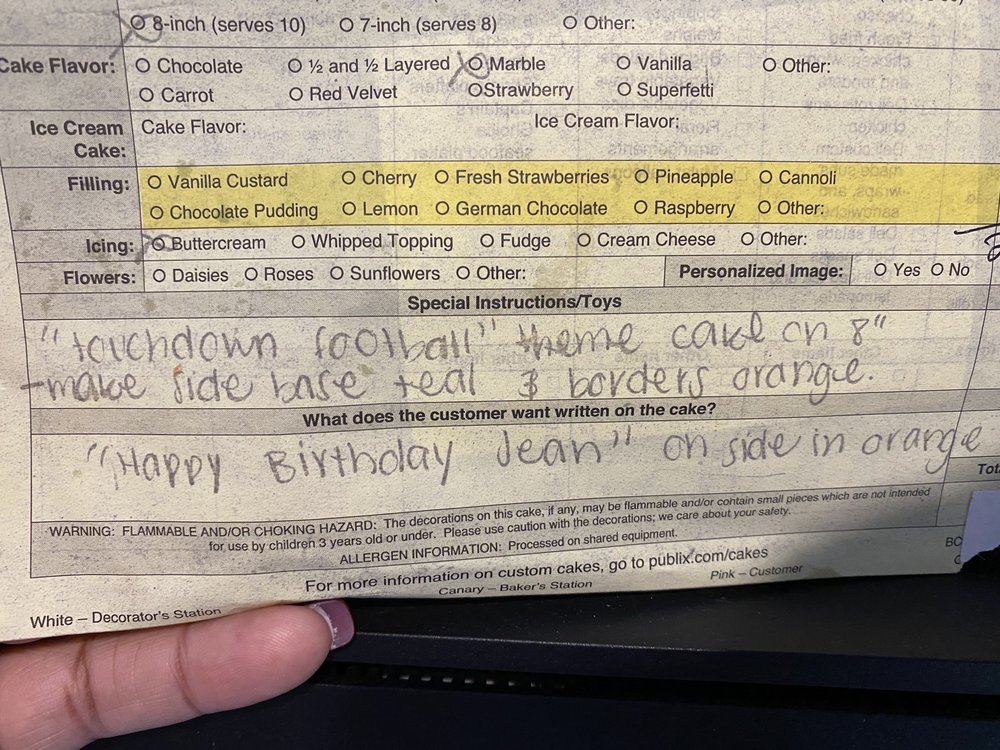 8-inch (serves 10) O 7-inch (serves 8) O Other:
Cake Flavor: O Chocolate O ½ and ½ Layered O Marble O Vanilla O Other:
O Carrot O Red Velvet O Strawberry O Superfetti
Ice Cream Cake Flavor: Ice Cream Flavor:
Cake:
Filling: O Vanilla Custard O Cherry O Fresh Strawberries O Pineapple O Cannoli
O Chocolate Pudding O Lemon O German Chocolate O Raspberry O Other:
Icing: O Buttercream O Whipped Topping O Fudge O Cream Cheese O Other:
Flowers: O Daisies O Roses O Sunflowers O Other: Personalized Image: O Yes O No
Special Instructions/Toys
"touchdown football" theme cake on 8"
-make side base teal & borders orange.
What does the customer want written on the cake?
"Happy Birthday Jean" on side in orange
WARNING: FLAMMABLE AND/OR CHOKING HAZARD: The decorations on this cake, if any, may be flammable and/or contain small pieces which are not intended
for use by children 3 years old or under. Please use caution with the decorations; we care about your safety.
ALLERGEN INFORMATION: Processed on shared equipment.
For more information on custom cakes, go to publix.com/cakes
White – Decorator's Station Canary – Baker's Station Pink – Customer